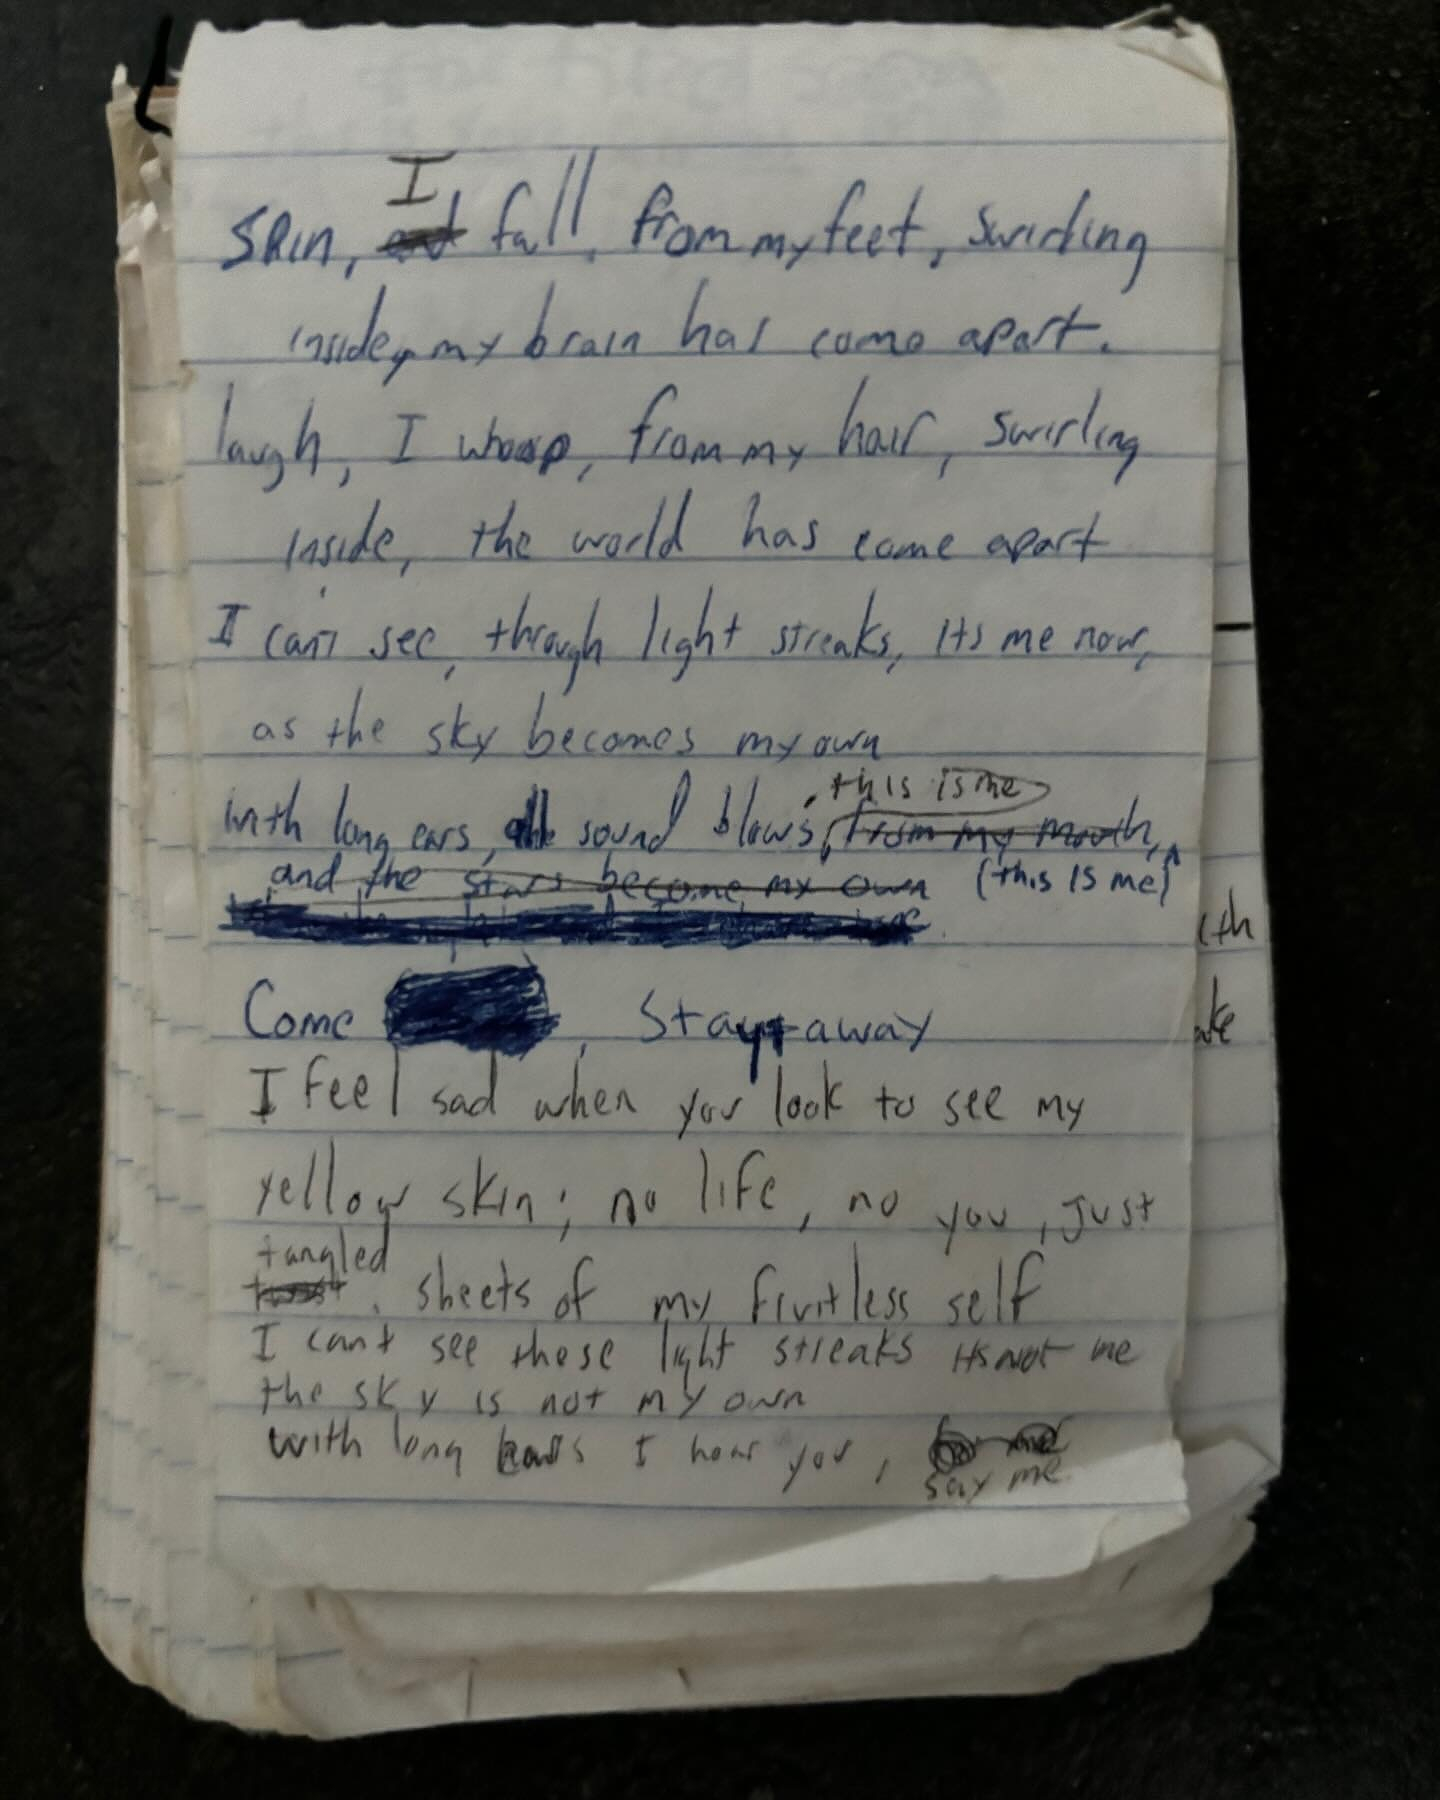 I
Spin, and fall, from my feet, swirling
inside, my brain has come apart.
laugh, I whoop, from my hair, swirling
inside, the world has come apart
I can't see, through light streaks, Its me now,
as the sky becomes my own
this is me
with long ears, all sound blows, from my mouth,
and the stars become my own (this is me)
Come , Stay away
I feel sad when you look to see my
yellow skin; no life, no you, just
tangled
sheets of my fruitless self
I cant see these light streaks its not me
the sky is not my own
with long ears I hear you,
say me